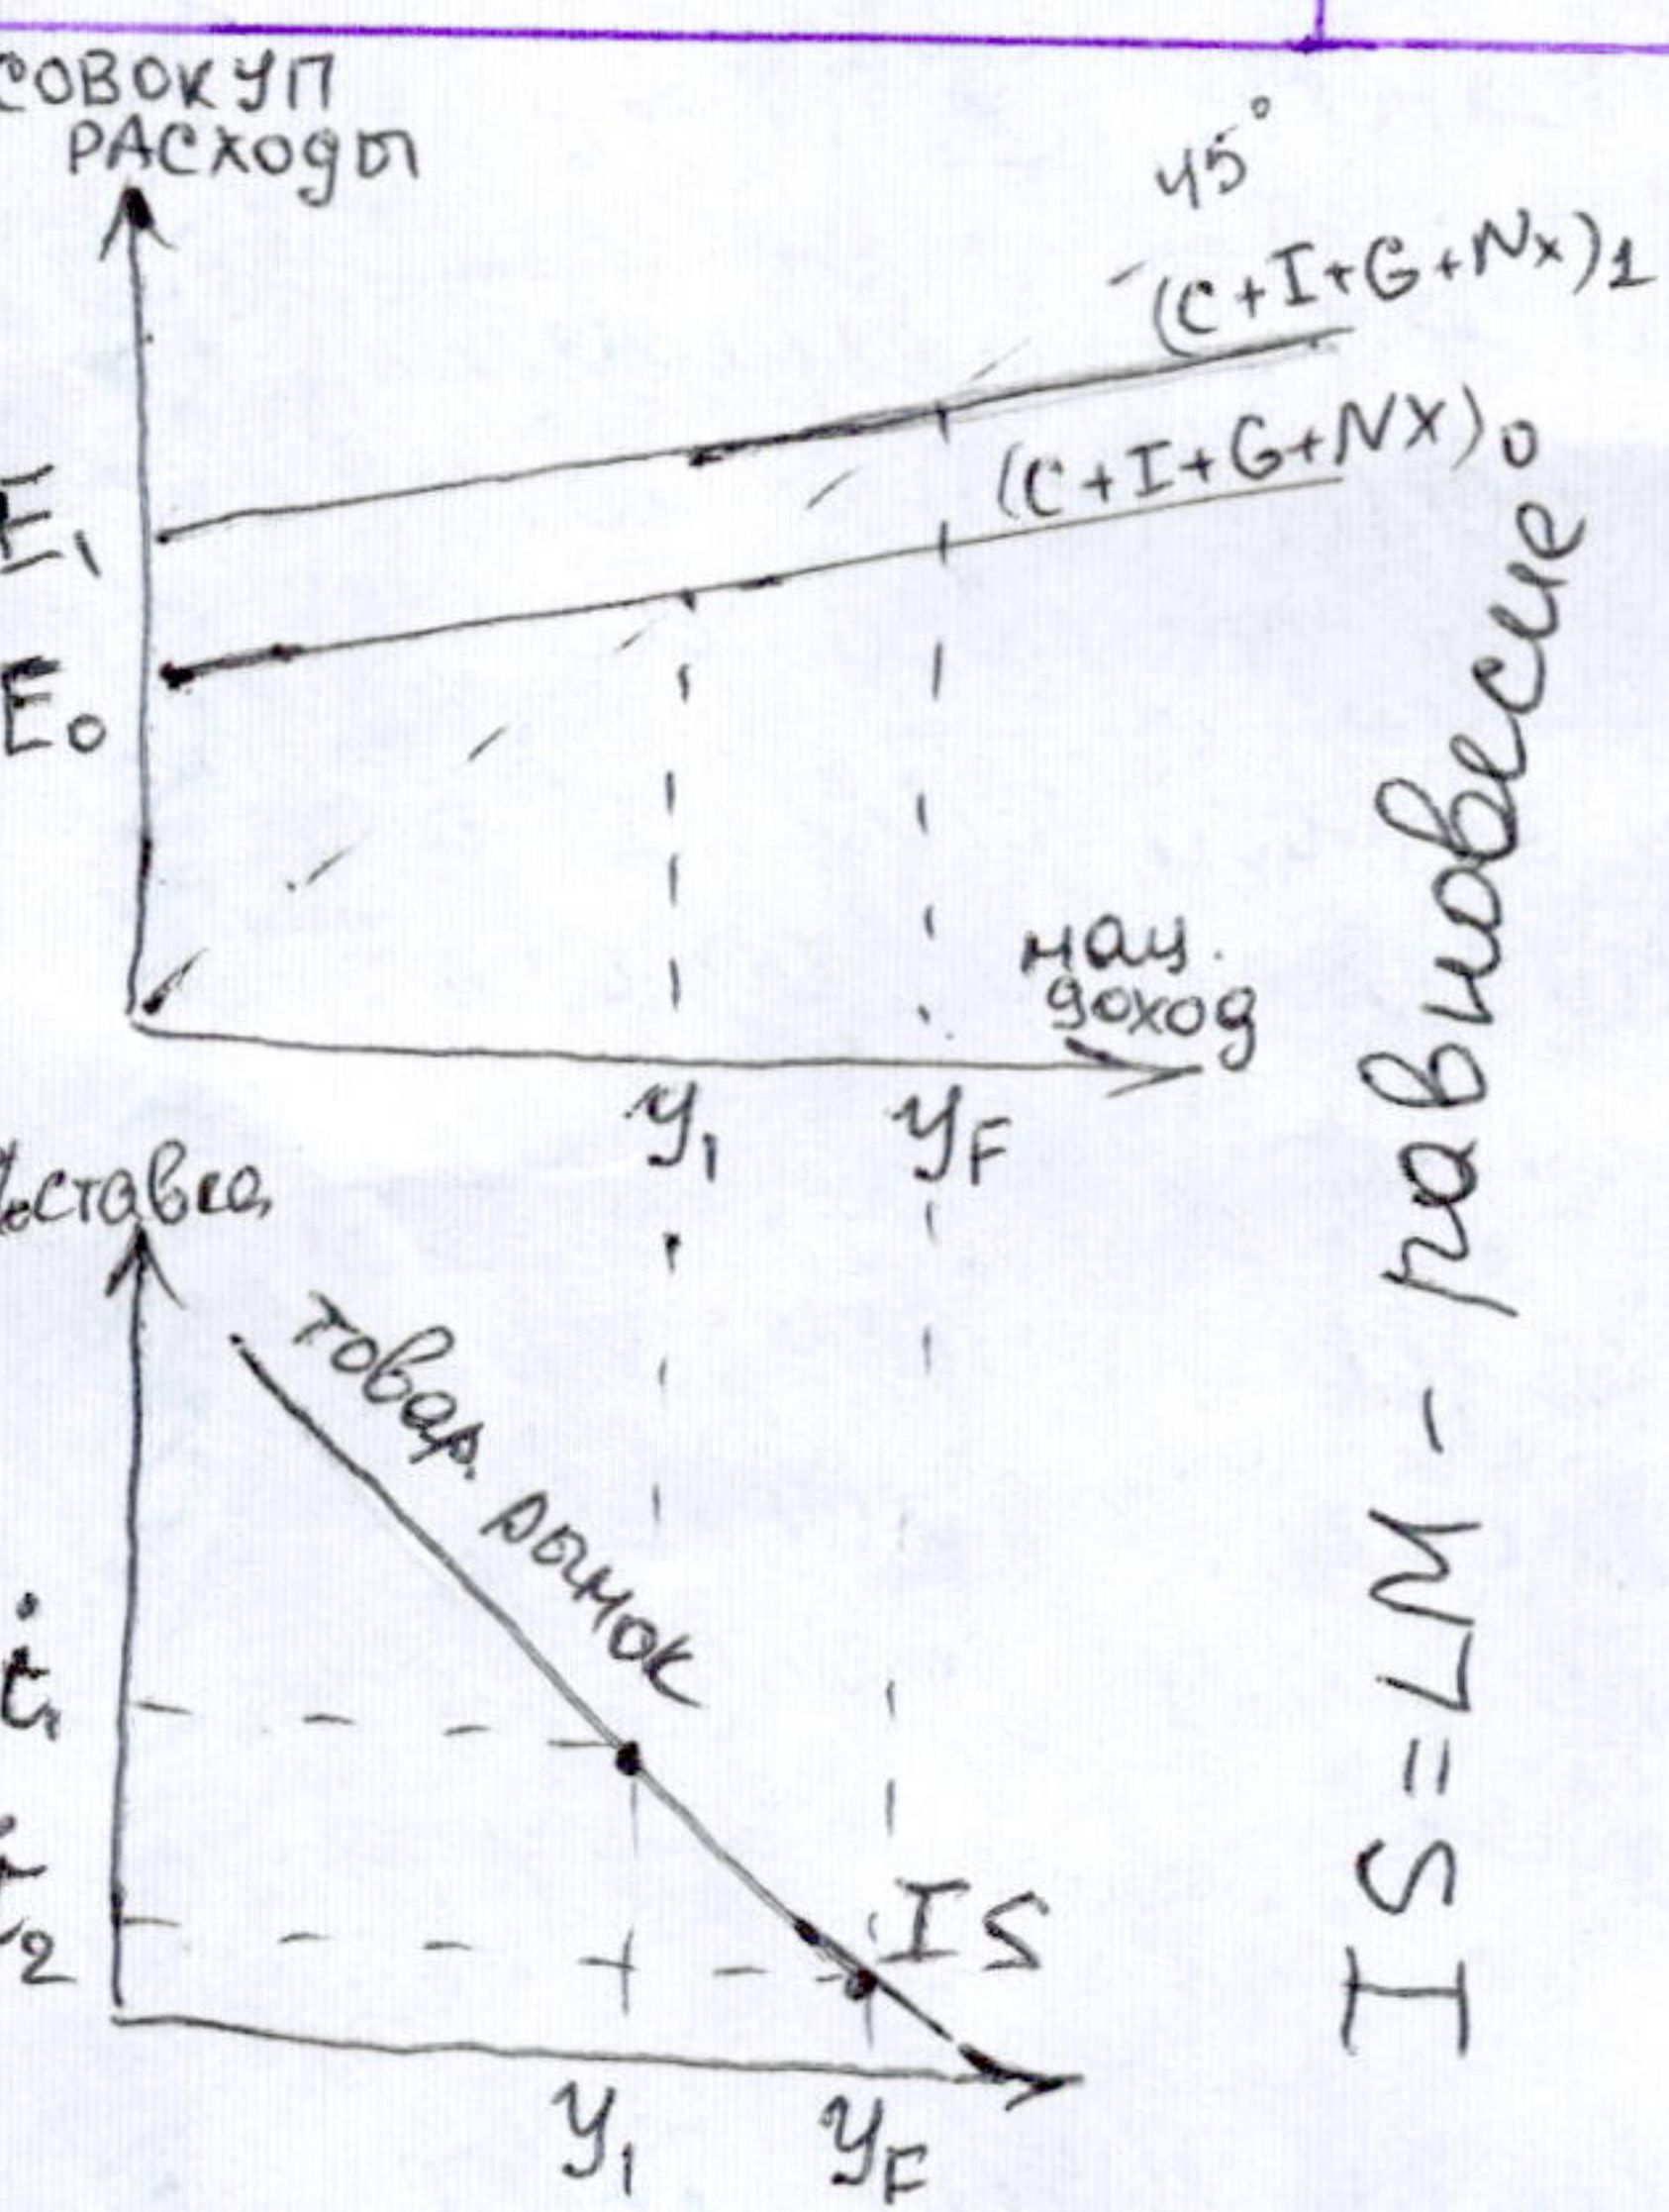 СОВОКУП
РАСХОДЫ
45°
(C+I+G+Nx)1
(C+I+G+NX)0
E1
E0
нац.
доход
y1
yF
%ставка
товар. рынок
i1
i2
IS
y1
yF
IS=LM - равновесие